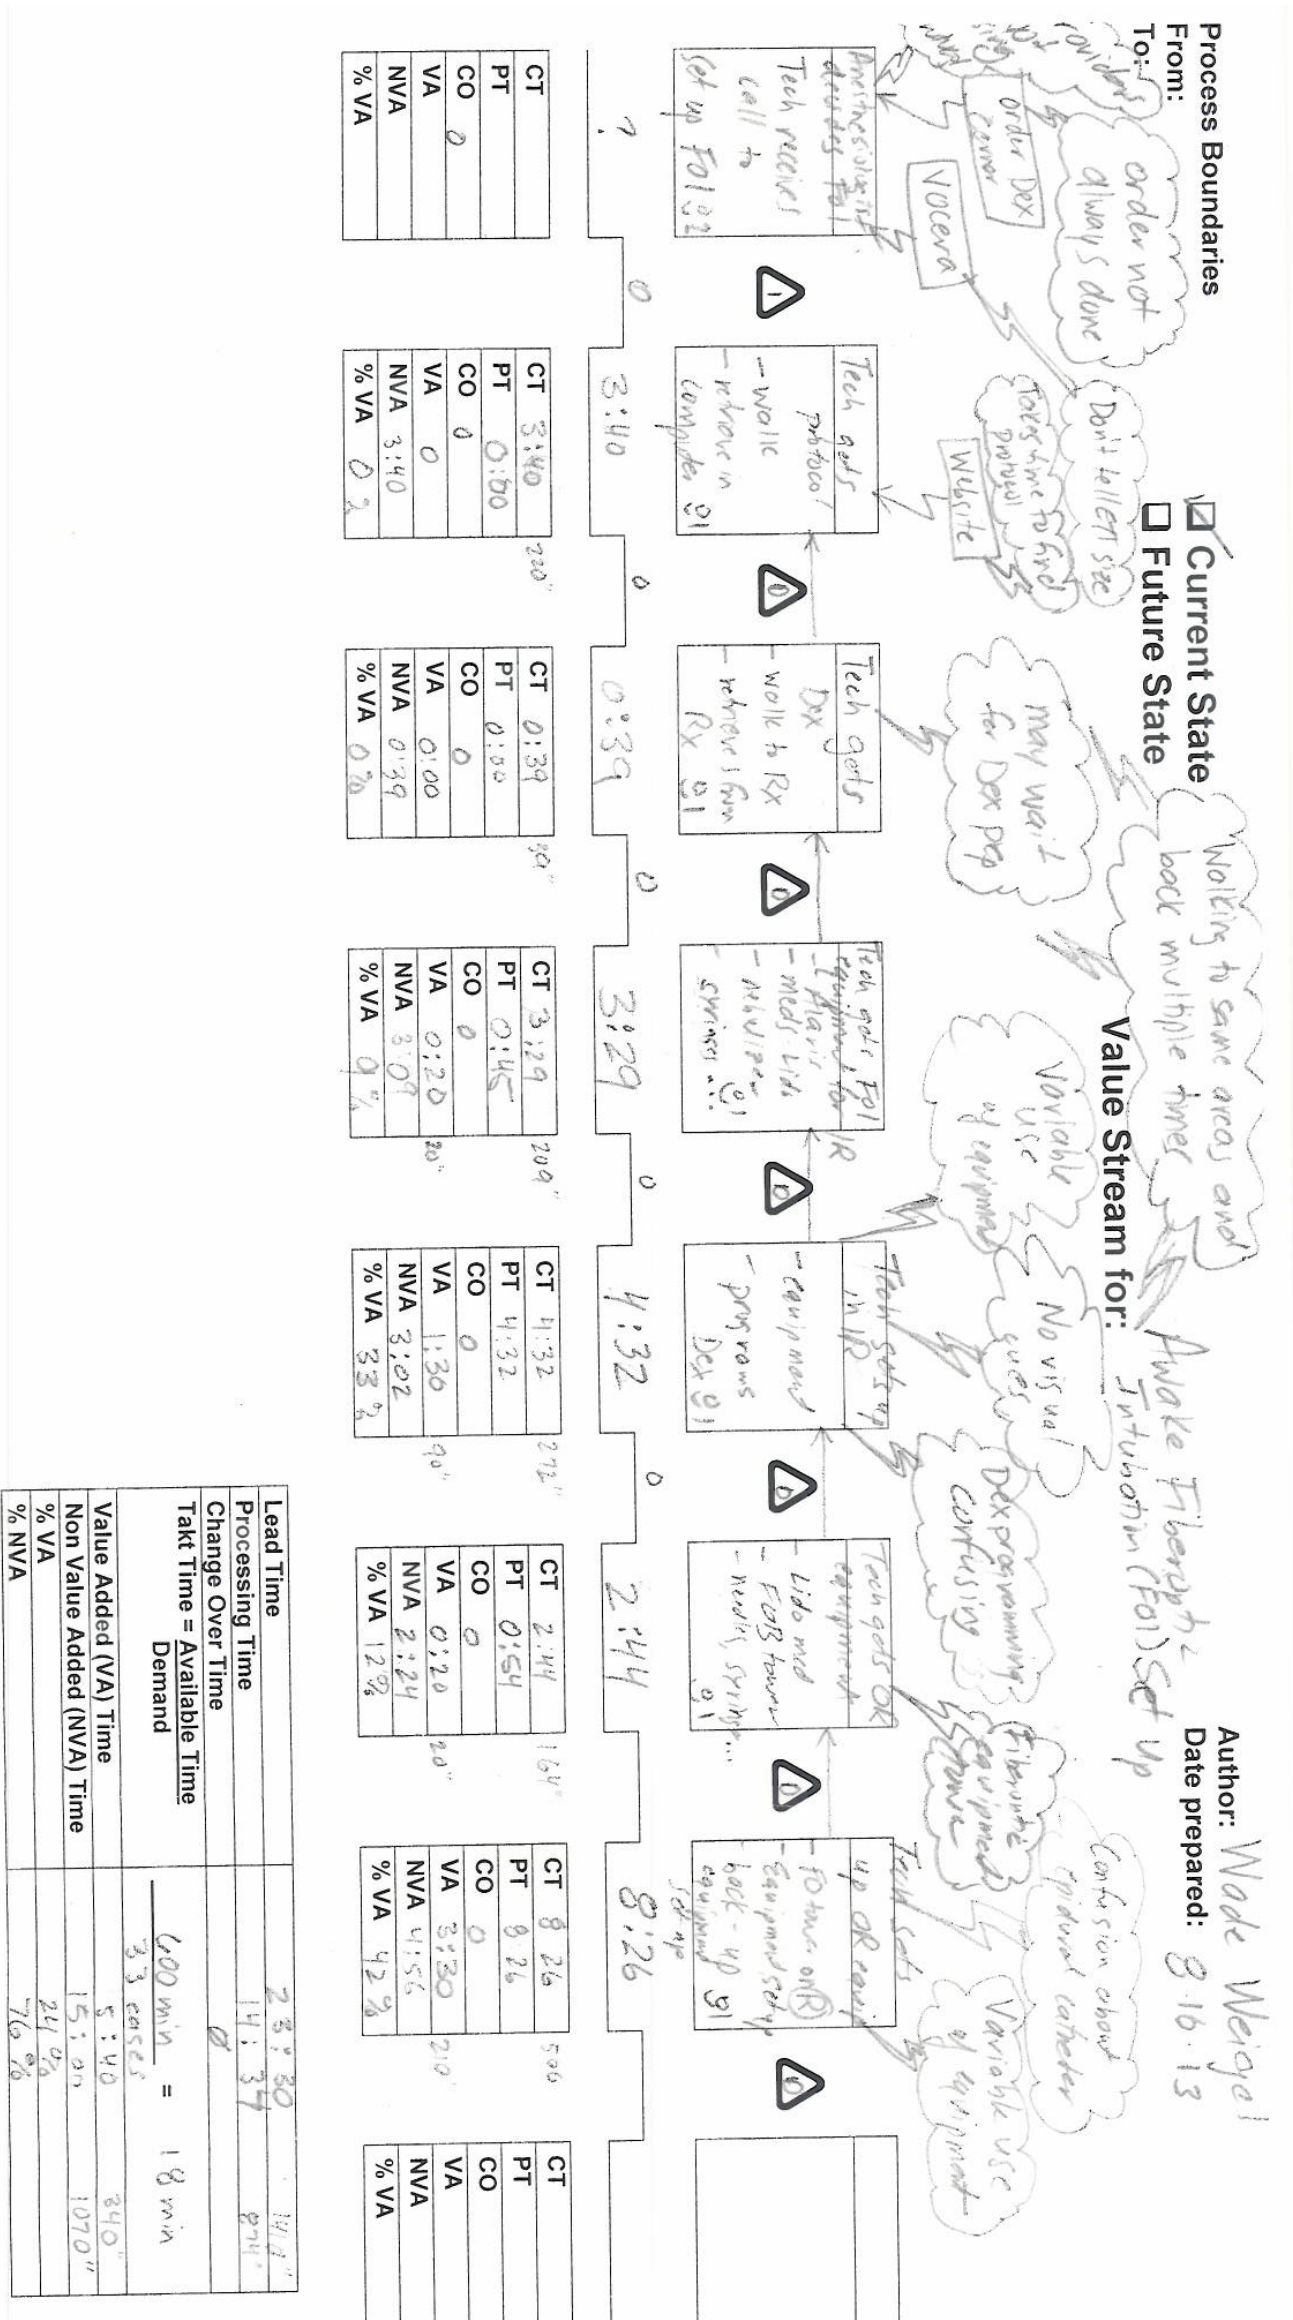 Process Boundaries
From:
To:
☑ Current State
☐ Future State
Value Stream for: Awake Fiberoptic
Intubation (FOI) Set Up
Author: Wade Weigel
Date prepared: 8.16.13
Walking to same areas and
back multiple times
order not
always done
order Dex
cerner
Vocera
Don't tell em size
Takes time to find
protocol
Website
may wait
for Dex prep
Variable
use
of equipment
No visual
cues
Dex programming
confusing
Fiberoptic
equipment
tower
Confusion about
epidural catheter
Variable use
of equipment
Anesthesiologist
decides FOI
Tech receives
call to
set up FOI 2
1
Tech gets
protocol
- walk
- retrieve in
computer 1
0
Tech gets
Dex
- walk to Rx
- retrieves from
Rx 1
0
Tech gets FOI
equipment for IR
- Alaris
- meds-Lido
- nebulizer 1
- syringes ...
0
Tech sets up
in IR
- equipment
- programs
Dex 1
0
Tech gets OR
equipment
- Lido med
- FOB tower
- needles, syringe...
1
0
Tech sets
up OR equip
- FO tower on (R)
- Equipment setup
- back-up
equipment 1
set up
0
?
0
3:40
0
0:39
0
3:29
0
4:32
0
2:44
8:26
CT
PT
CO 0
VA
NVA
% VA
CT 3:40 220"
PT 0:00
CO 0
VA 0
NVA 3:40
% VA 0 %
CT 0:39 39"
PT 0:00
CO 0
VA 0:00
NVA 0:39
% VA 0%
CT 3:29 209"
PT 0:45
CO 0
VA 0:20 20"
NVA 3:09
% VA 9%
CT 4:32 272"
PT 4:32
CO 0
VA 1:30 90"
NVA 3:02
% VA 33%
CT 2:44 164"
PT 0:54
CO 0
VA 0:20 20"
NVA 2:24
% VA 12%
CT 8 26 506
PT 8 26
CO 0
VA 3:30 210"
NVA 4:56
% VA 42%
CT
PT
CO
VA
NVA
% VA
Lead Time 23:30 1410"
Processing Time 14:37 874"
Change Over Time Ø
Takt Time = Available Time 600 min = 18 min
Demand 33 cases
Value Added (VA) Time 5:40 340"
Non Value Added (NVA) Time 15:00 1070"
% VA 24%
% NVA 76%